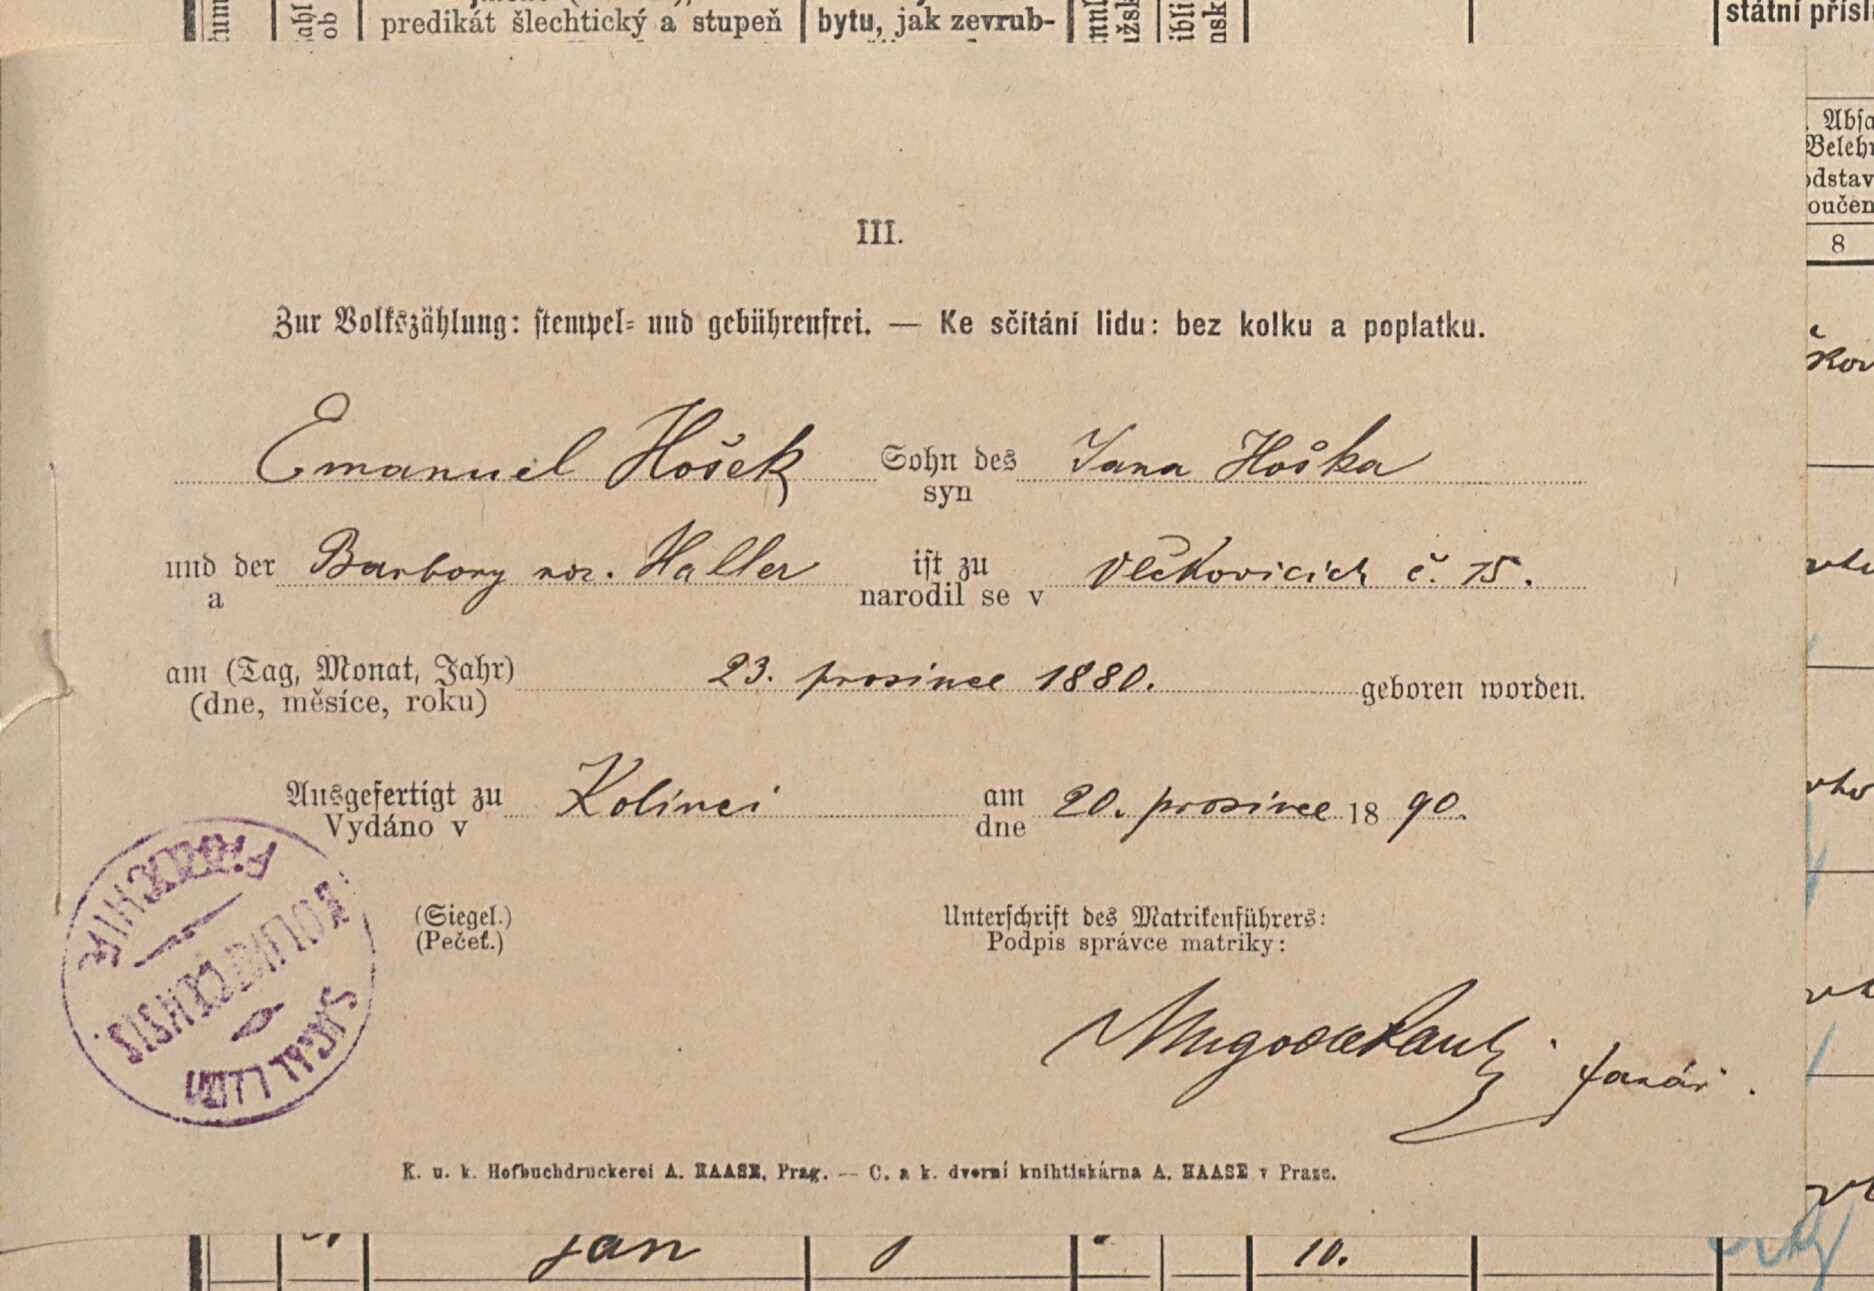 predikát šlechtický a stupeň
bytu, jak zevrub-
státní přísl
Absa
Belehr
odstav
oučen
8
III.
Zur Volkszählung: stempel- und gebührenfrei. — Ke sčítání lidu: bez kolku a poplatku.
Emanuel Hošek Sohn des Jana Hoška
syn
und der Barbory roz. Haller ist zu Vlčkovicích č. 15.
a narodil se v
am (Tag, Monat, Jahr) 23. prosince 1880. geboren worden.
(dne, měsíce, roku)
Ausgefertigt zu Kolinci am 20. prosince 1890.
Vydáno v dne
(Siegel.) Unterschrift des Matrikenführers:
(Pečeť.) Podpis správce matriky:
farář.
K. u. k. Hofbuchdruckerei A. HAASE, Prag. — C. a k. dvorní knihtiskárna A. HAASE v Praze.
Jan
10.